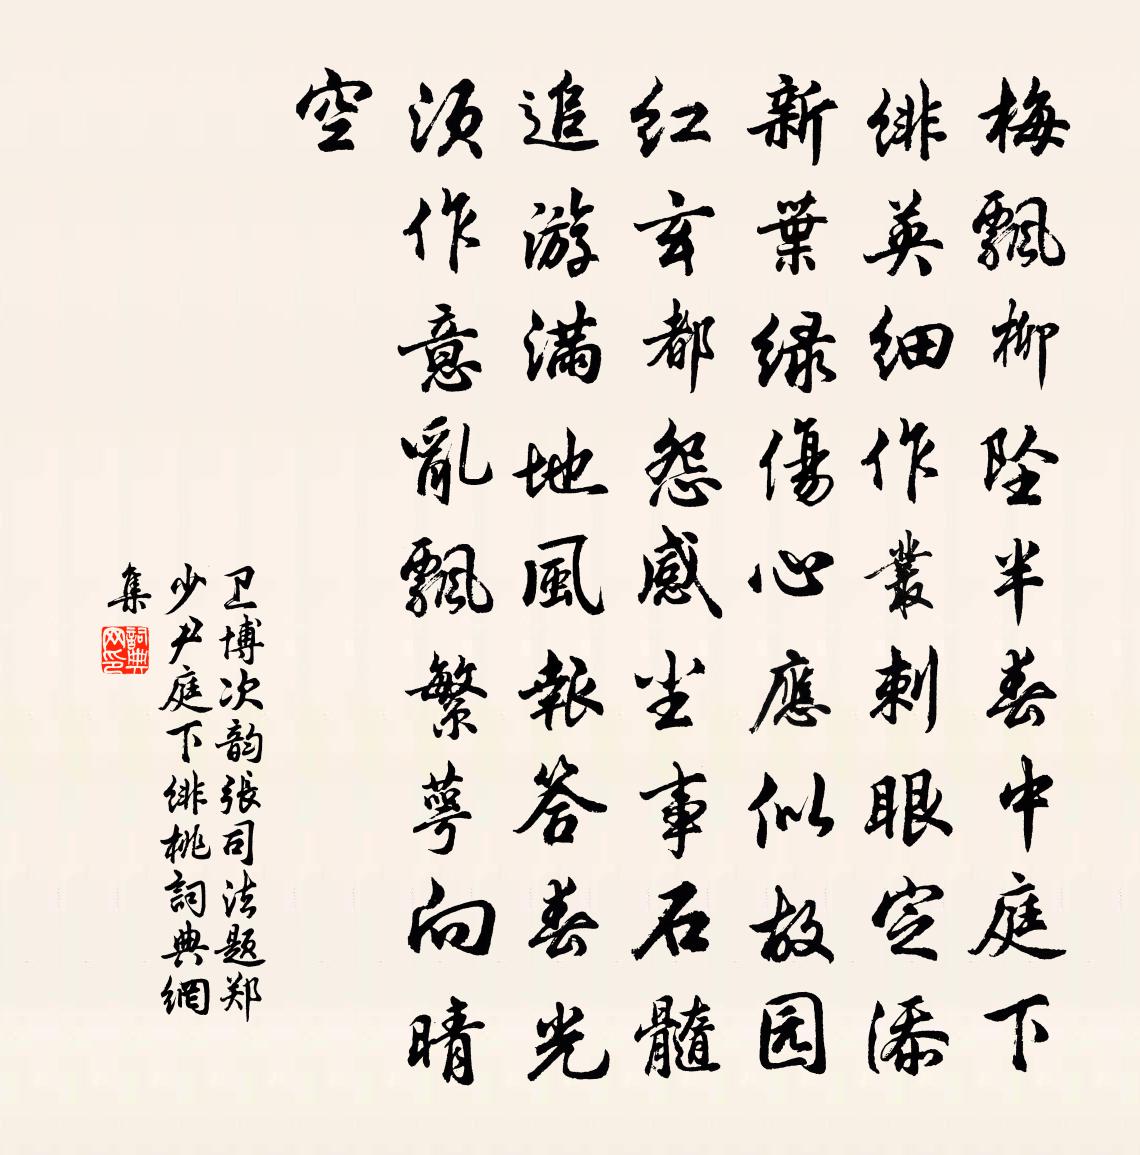 梅飄柳坠半春中庭下
绯英细作叢刺眼定添
新葉绿傷心應似故园
红玄都怨感尘事石髓
追游满地風報答春光
须作意亂飄繁萼向晴
空
卫博次韵張司法题郑
少尹庭下绯桃詞典網
集
詞典
网印